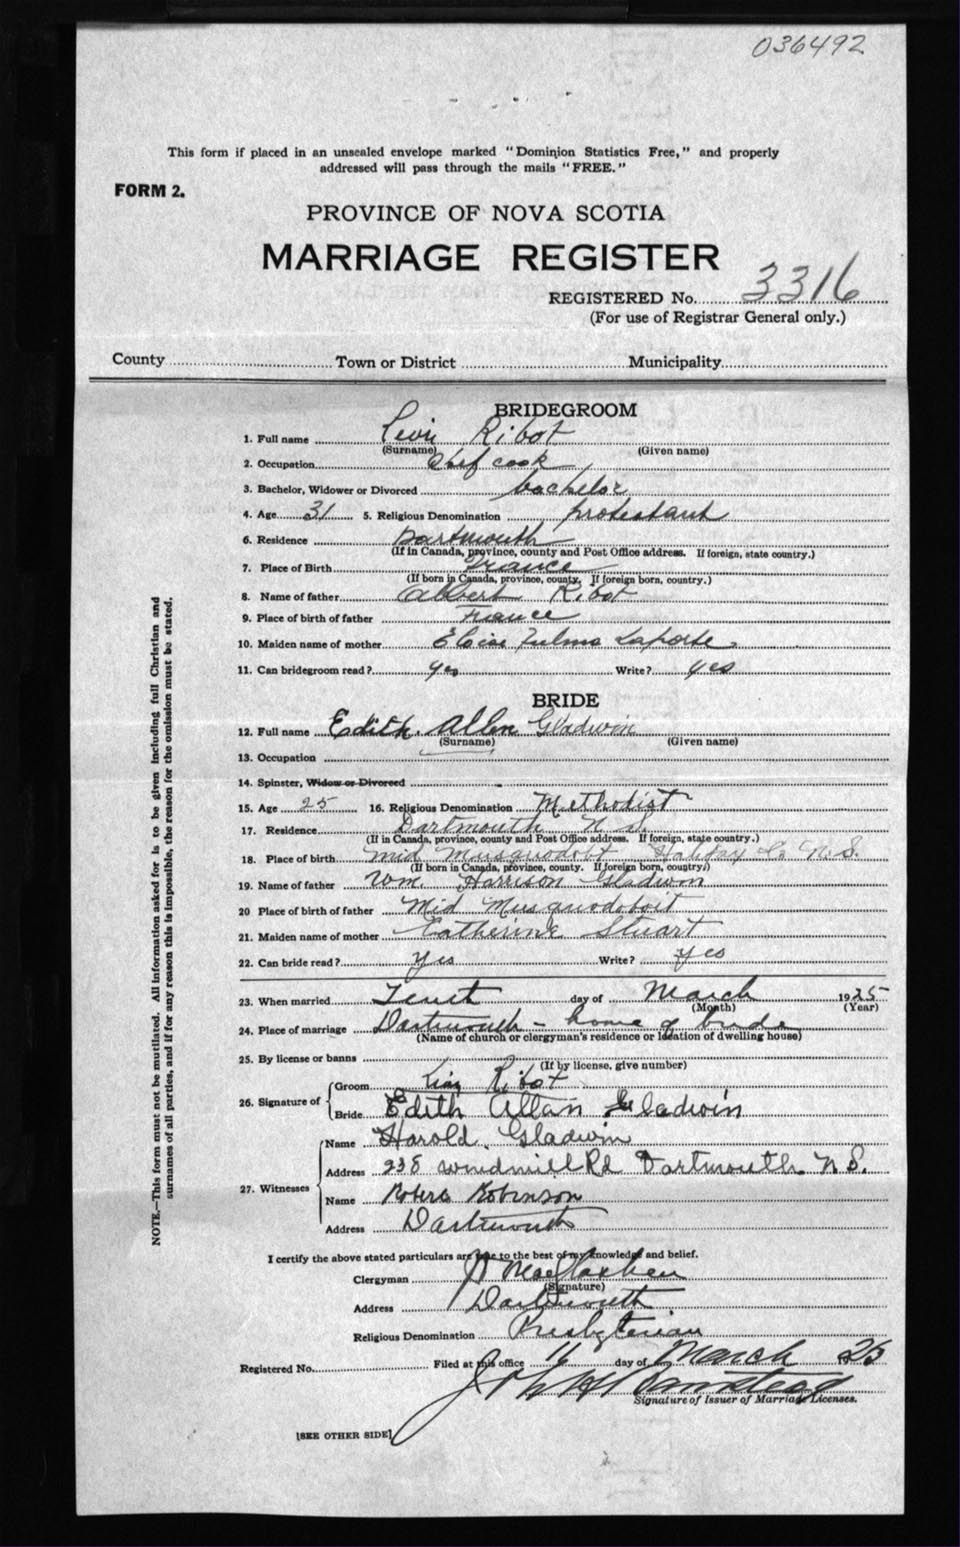 036492
This form if placed in an unsealed envelope marked "Dominion Statistics Free," and properly
addressed will pass through the mails "FREE."
FORM 2.
PROVINCE OF NOVA SCOTIA
MARRIAGE REGISTER
REGISTERED No. 3316
(For use of Registrar General only.)
County Town or District Municipality
BRIDEGROOM
1. Full name Ribot
(Surname) (Given name)
2. Occupation Chef cook
3. Bachelor, Widower or Divorced bachelor
4. Age 31 5. Religious Denomination protestant
6. Residence Dartmouth
(If in Canada, province, county and Post Office address. If foreign, state country.)
7. Place of Birth France
(If born in Canada, province, county. If foreign born, country.)
8. Name of father Albert Ribot
9. Place of birth of father France
10. Maiden name of mother Laporte
11. Can bridegroom read? yes Write? yes
BRIDE
12. Full name Edith Allen Gladwin
(Surname) (Given name)
13. Occupation
14. Spinster, Widow or Divorced
15. Age 25 16. Religious Denomination Methodist
17. Residence Dartmouth N S.
(If in Canada, province, county and Post Office address. If foreign, state country.)
18. Place of birth Mid Musquodobt Halifax Co N.S.
(If born in Canada, province, county. If foreign born, country.)
19. Name of father Wm. Harrison Gladwin
20 Place of birth of father Mid Musquodoboit
21. Maiden name of mother Catherine Stuart
22. Can bride read? yes Write? yes
23. When married day of March 1925
(Month) (Year)
24. Place of marriage Dartmouth - home of bride
(Name of church or clergyman's residence or location of dwelling house)
25. By license or banns
(If by license, give number)
26. Signature of Groom Ribot
Bride Edith Allan Gladwin
27. Witnesses Name Harold Gladwin
Address 238 Windmill Rd Dartmouth N S.
Name Robinson
Address Dartmouth
I certify the above stated particulars are true to the best of my knowledge and belief.
Clergyman
(Signature)
Address Dartmouth
Religious Denomination Presbyterian
Registered No. Filed at this office 16 day of March 1925
Signature of Issuer of Marriage Licenses.
[SEE OTHER SIDE]
NOTE.—This form must not be mutilated. All information asked for is to be given including full Christian and
surnames of all parties, and if for any reason this is impossible, the reason for the omission must be stated.